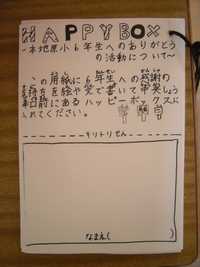 HAPPYBOX
~本地原小6年生へのありがとう
の活動について~
この用紙に6年生への感謝の
を絵や文で書いて
にあるハッピーボックスに
入れてください。
キリトリせん
なまえ( )